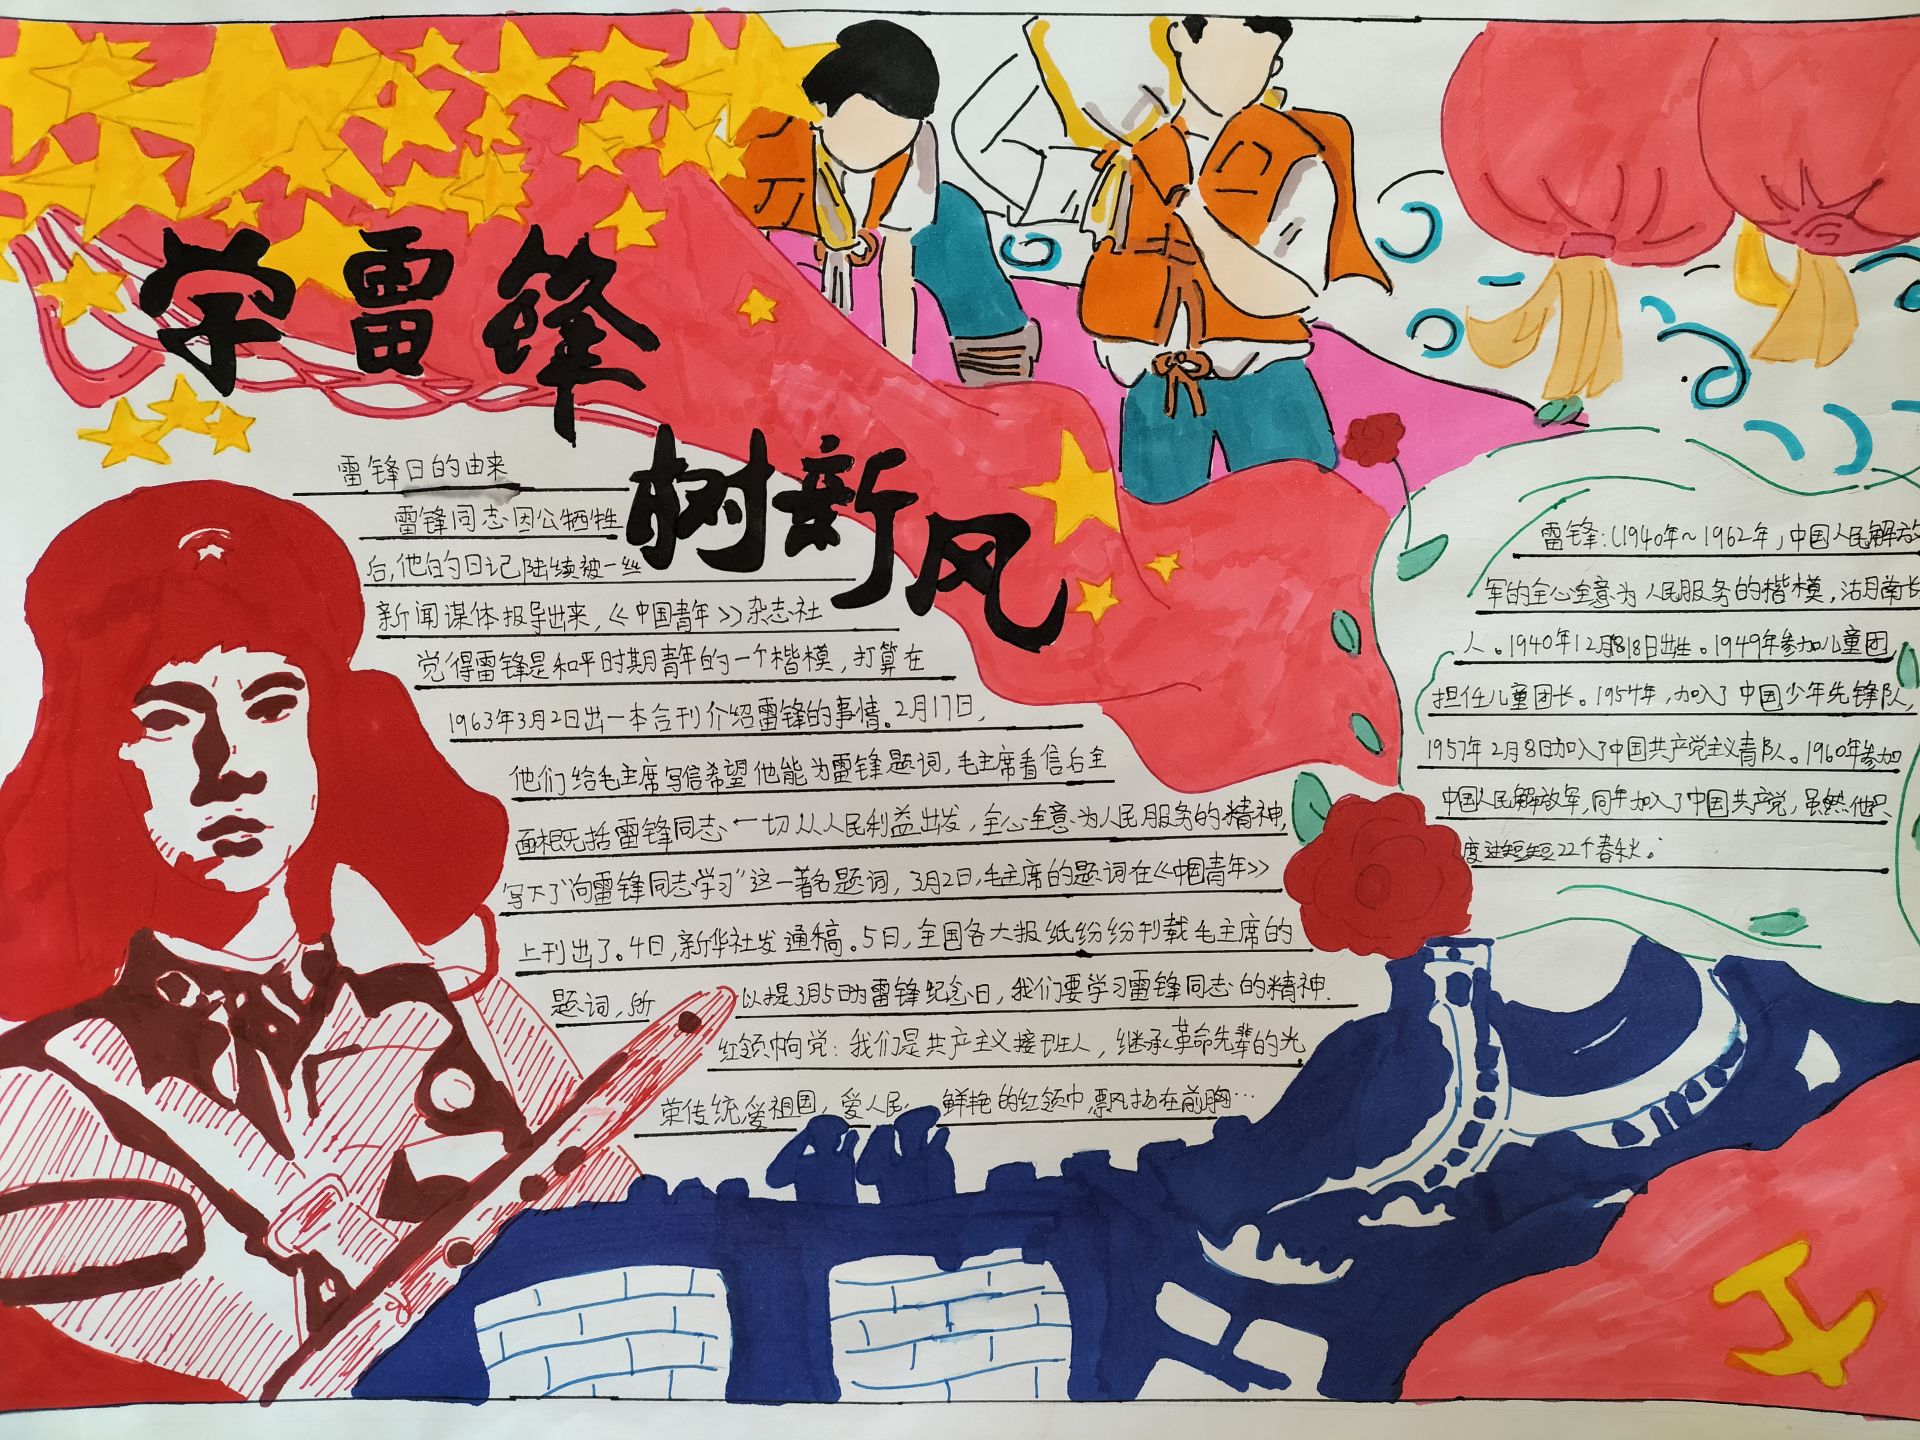 学雷锋
树新风
雷锋日的由来
雷锋同志因公牺牲
后,他的日记陆续被一些
新闻媒体报导出来,《中国青年》杂志社
觉得雷锋是和平时期青年的一个楷模,打算在
1963年3月2日出一本合刊介绍雷锋的事情。2月17日,
他们给毛主席写信希望他能为雷锋题词,毛主席看信后全
面概括雷锋同志一切从人民利益出发,全心全意为人民服务的精神,
写下了"向雷锋同志学习"这一著名题词,3月2日,毛主席的题词在《中国青年》
上刊出了。4日,新华社发通稿。5日,全国各大报纸纷纷刊载毛主席的
题词,所以把3月5日为雷锋纪念日,我们要学习雷锋同志的精神.
红领巾向党:我们是共产主义接班人,继承革命先辈的光
荣传统爱祖国,爱人民,鲜艳的红领巾飘扬在前胸…
雷锋:(1940年~1962年,中国人民解放
军的全心全意为人民服务的楷模,沽月南长
人。1940年12月18日出生。1949年参加儿童团,
担任儿童团长。1954年,加入了中国少年先锋队,
1957年2月8日加入了中国共产党主义青队。1960年参加
中国人民解放军,同年加入了中国共产党,虽然他只
度过短短22个春秋。